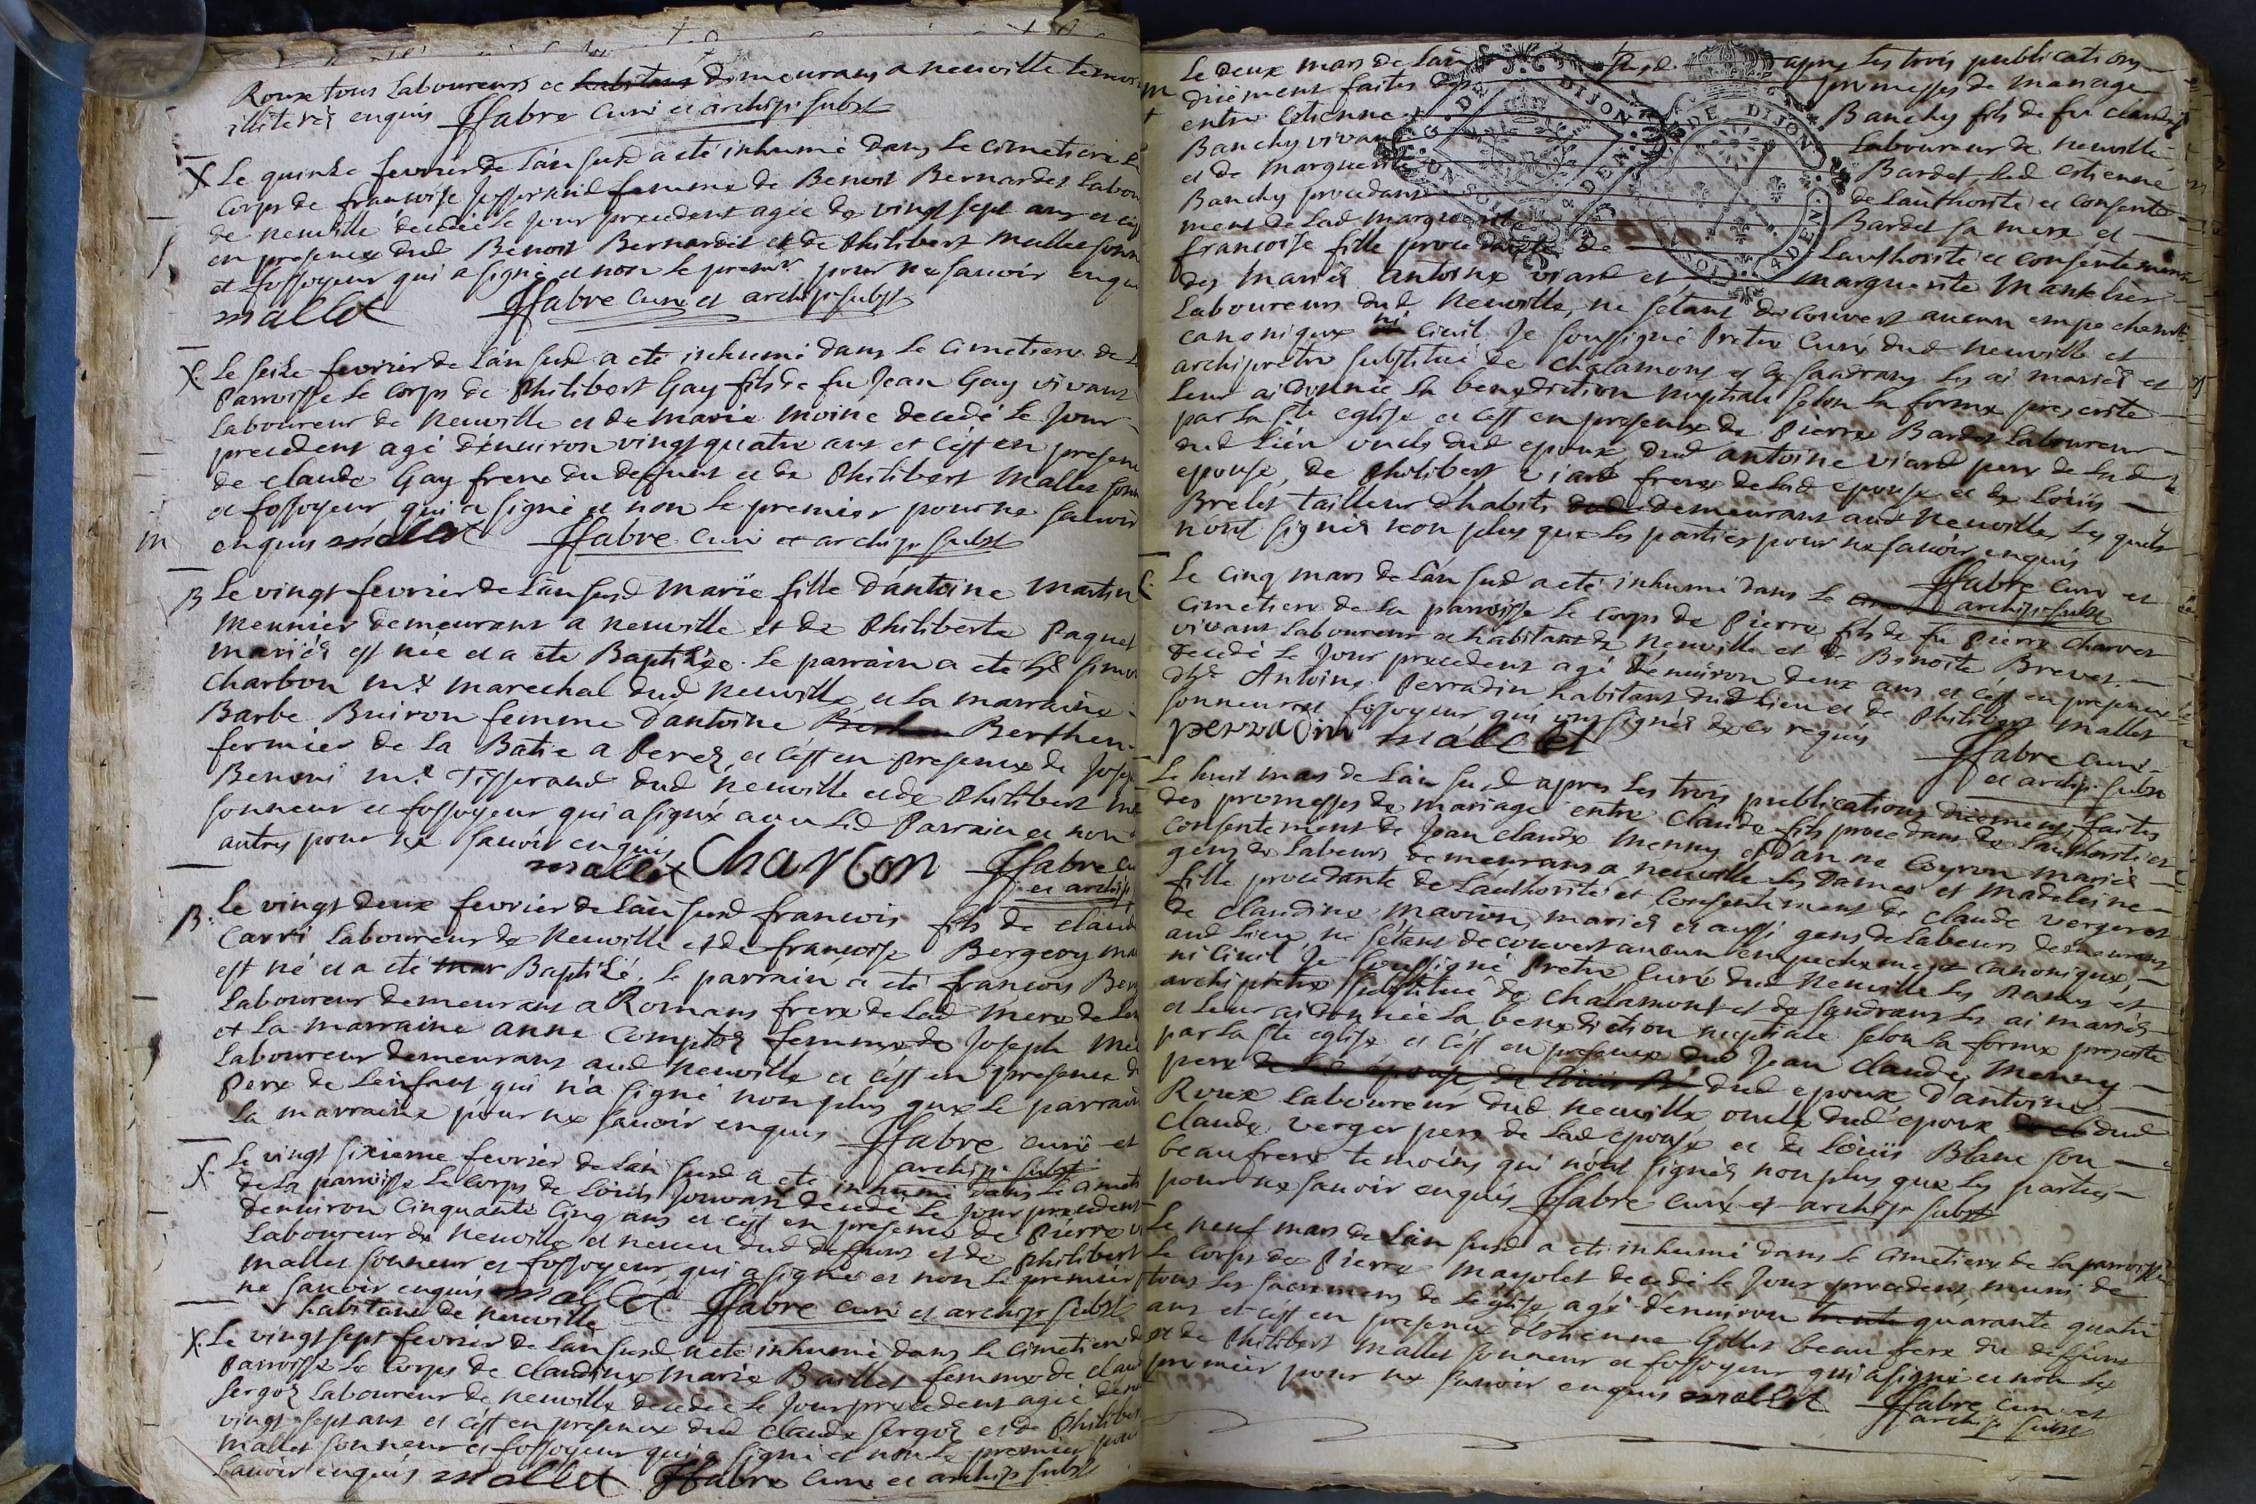 Roux tous Laboureurs et habitans demeurans a neuville temoins
illiterés enquis ffabre curé et archip. subst
X Le quinze fevrier de L'an susd a eté inhumé dans Le cimetiere
corps de francoise femme de Benoit Bernardet Labou
de neuville decedée Le jour precedent agée de vingt sept ans et c'est
en presence dud Benoit Bernardet et de Philibert mallet sonn
et fossoyeur qui a signé et non Le premier pour ne savoir enquis
mallet ffabre curé et archip subst
X. Le seize fevrier de L'an susd a eté inhumé dans Le cimetiere de
Parroisse Le corps de Philibert Gay fils de fu Jean Gay vivant
Laboureur de neuville et de marie moine decedé Le Jour
precedent agé d'environ vingt quatre ans et c'est en presen
de claude Gay frere du deffunt et de Philibert mallet sonn
et fossoyeur qui a signé et non Le premier pour ne savoir
enquis mallet ffabre curé et archip. subst
B Le vingt fevrier de L'an susd marie fille d'antoine martin
meunier demeurant a neuville et de Philiberte Paquet
mariés est née et a ete Baptizée. Le parrain a ete simon
Charbon mre marechal dud neuville et La marraine
Barbe Buiron femme d'antoine Berthen
fermier de La Batie a et c'est en presence de Jose
mre Tisserand dud neuville et de Philibert m
sonneur et fossoyeur qui a signé avec Led Parrain et non
autres pour ne savoir enquis
mallet Charbon ffabre cu
et archip
B. Le vingt deux fevrier de L'an susd francois fils de claude
Carri Laboureur de neuville et de francoise Bergeon ma
est né et a eté Baptizé. Le parrain a eté francois Ber
Laboureur demeurant a Romans frere de Lad mere de
et La marraine anne femme de Joseph
Laboureur demeurant aud neuville et c'est en presence d
Pere de L'enfant qui n'a signé non plus que Le parrain
La marraine pour ne savoir enquis ffabre curé et
archip. subst
X Le vingt sixieme fevrier de L'an susd a ete inhumé dans Le cimeti
de La parroisse Le corps de Louis decedé Le Jour precedent
d'environ Cinquante Cinq ans et c'est en presence de Pierre
Laboureur de neuville et neveu dud deffunt et de Philibert
mallet sonneur et fossoyeur qui a signé et non Le premier
ne savoir enquis mallet ffabre curé et archip subst
habitant de neuville
X. Le vingt sept fevrier de L'an susd a eté inhumé dans Le cimetiere de
Parroisse Le corps de claudine marie Baillet femme de clau
Laboureur de neuville decedée Le Jour precedent agée d'en
vingt sept ans et c'est en presence dud claude et de Philiber
mallet sonneur et fossoyeur qui a signé et non Le premier pour
savoir enquis mallet ffabre curé et archip subst
Le deux mars de L'an susd. apres Les trois publications
düement faites des promesses de mariage
entre Estienne Banchy fils de fu claude
Banchy vivant Laboureur de neuville
et de marguerite Bardet Led Estienne
Banchy procedant de L'authorité et consente
ment de Lad marguerite Bardet sa mere et
francoise fille procedante de L'authorité et consentement
des mariés antoine viard et marguerite mantelier
Laboureurs dud neuville, ne s'etant decouvert aucun empechement
canonique ni civil Je soussigné Pretre curé dud neuville et
archipretre substitué de chalamont et de sandrans Les ai mariés et
Leur ai donnée La benediction nuptiale selon La forme prescrite
par La Ste eglise et c'est en presence de Pierre Bardet Laboureur
dud Lieu oncle dud epoux dud antoine viard pere de Lad
epouse, de Philibert viard frere de Lad epouse et de Loüis
Brelet tailleur d'habits demeurant aud neuville, Les quels
n'ont signés non plus que Les parties pour ne savoir enquis
ffabre curé et
archip subst
Le cinq mars de L'an susd a eté inhumé dans Le
cimetiere de La parroisse Le corps de Pierre fils de fu Pierre charvet
vivant Laboureur et habitant de neuville et de Benoite Brevet
decedé Le Jour precedent agé d'environ deux ans et c'est en presence
Antoine Perradin habitant dud Lieu et de Philibert mallet
sonneur et fossoyeur qui ont signés de ce requis
perradin mallet ffabre curé
et archip. subst
Le huit mars de L'an susd apres Les trois publications düement faites
des promesses de mariage entre Claude fils procedant de L'authorité et
consentement de Jean claude menny et d'anne Coyron mariés
gens de Labeurs demeurans a neuville Les Dames et madeleine
fille procedante de L'authorité et consentement de claude verger et
de claudine marion, mariés et aussi gens de Labeurs demeurans
aud Lieu ne s'etant decouvert aucun empechement canonique,
ni civil Je soussigné Pretre Curé dud neuville Les Dames et
archipretre substitué de chalamont et de sandrans Les ai mariés
et Leur ai donnée La benediction nuptiale selon La forme prescrite
par La Ste eglise et c'est en presence dud Jean claude menny
pere de Lad epouse, de Louis dud epoux d'antoine
Roux Laboureur dud neuville oncle dud epoux dud
claude verger pere de Lad epouse et de Loüis Blanc son
beaufrere temoins qui n'ont signés non plus que Les parties
pour ne savoir enquis ffabre curé et archip subst
Le neuf mars de L'an susd a eté inhumé dans Le cimetiere de La parroisse
Le corps de Pierre mayolet decedé le Jour precedent, muni de
tous Les sacremens de L'eglise, agé d'environ trente quarante quatre
ans et c'est en presence d'Estienne Gillet beau frere du deffunt
et de Philibert mallet sonneur et fossoyeur qui a signé et non Le
premier pour ne savoir enquis mallet ffabre curé et
archip subst